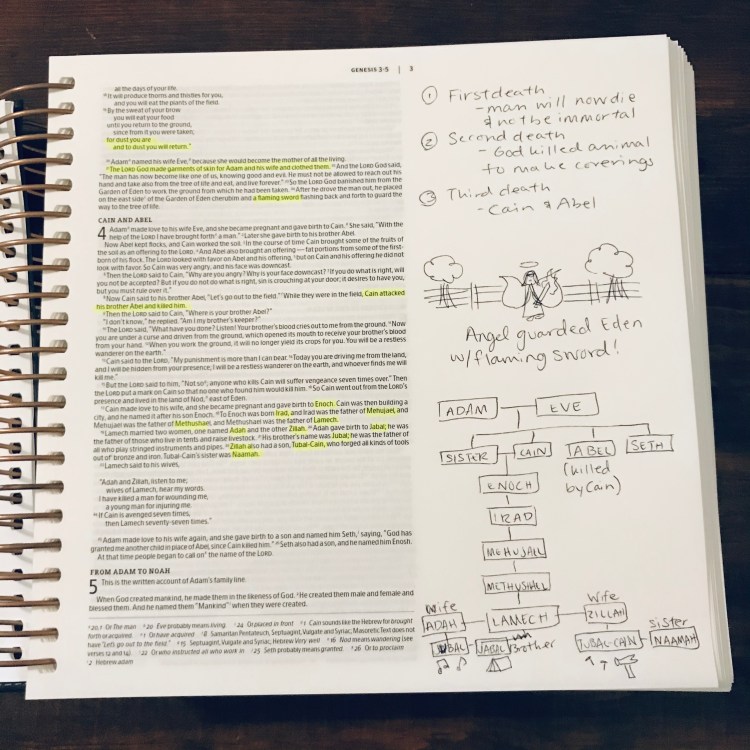 GENESIS 3-5 | 3
all the days of your life.
18 It will produce thorns and thistles for you,
and you will eat the plants of the field.
19 By the sweat of your brow
you will eat your food
until you return to the ground,
since from it you were taken;
for dust you are
and to dust you will return."
20 Adam named his wife Eve, because she would become the mother of all the living.
21 The LORD God made garments of skin for Adam and his wife and clothed them. 22 And the LORD God said,
"The man has now become like one of us, knowing good and evil. He must not be allowed to reach out his
hand and take also from the tree of life and eat, and live forever." 23 So the LORD God banished him from the
Garden of Eden to work the ground from which he had been taken. 24 After he drove the man out, he placed
on the east side of the Garden of Eden cherubim and a flaming sword flashing back and forth to guard the
way to the tree of life.
CAIN AND ABEL
4 Adam made love to his wife Eve, and she became pregnant and gave birth to Cain. She said, "With the
help of the LORD I have brought forth a man." 2 Later she gave birth to his brother Abel.
Now Abel kept flocks, and Cain worked the soil. 3 In the course of time Cain brought some of the fruits of
the soil as an offering to the LORD. 4 And Abel also brought an offering — fat portions from some of the first-
born of his flock. The LORD looked with favor on Abel and his offering, 5 but on Cain and his offering he did not
look with favor. So Cain was very angry, and his face was downcast.
6 Then the LORD said to Cain, "Why are you angry? Why is your face downcast? 7 If you do what is right, will
you not be accepted? But if you do not do what is right, sin is crouching at your door; it desires to have you,
but you must rule over it."
8 Now Cain said to his brother Abel, "Let's go out to the field." While they were in the field, Cain attacked
his brother Abel and killed him.
9 Then the LORD said to Cain, "Where is your brother Abel?"
"I don't know," he replied. "Am I my brother's keeper?"
10 The LORD said, "What have you done? Listen! Your brother's blood cries out to me from the ground. 11 Now
you are under a curse and driven from the ground, which opened its mouth to receive your brother's blood
from your hand. 12 When you work the ground, it will no longer yield its crops for you. You will be a restless
wanderer on the earth."
13 Cain said to the LORD, "My punishment is more than I can bear. 14 Today you are driving me from the land,
and I will be hidden from your presence; I will be a restless wanderer on the earth, and whoever finds me will
kill me."
15 But the LORD said to him, "Not so; anyone who kills Cain will suffer vengeance seven times over." Then
the LORD put a mark on Cain so that no one who found him would kill him. 16 So Cain went out from the LORD's
presence and lived in the land of Nod, east of Eden.
17 Cain made love to his wife, and she became pregnant and gave birth to Enoch. Cain was then building a
city, and he named it after his son Enoch. 18 To Enoch was born Irad, and Irad was the father of Mehujael, and
Mehujael was the father of Methushael, and Methushael was the father of Lamech.
19 Lamech married two women, one named Adah and the other Zillah. 20 Adah gave birth to Jabal; he was
the father of those who live in tents and raise livestock. 21 His brother's name was Jubal; he was the father of
all who play stringed instruments and pipes. 22 Zillah also had a son, Tubal-Cain, who forged all kinds of tools
out of bronze and iron. Tubal-Cain's sister was Naamah.
23 Lamech said to his wives,
"Adah and Zillah, listen to me;
wives of Lamech, hear my words.
I have killed a man for wounding me,
a young man for injuring me.
24 If Cain is avenged seven times,
then Lamech seventy-seven times."
25 Adam made love to his wife again, and she gave birth to a son and named him Seth, saying, "God has
granted me another child in place of Abel, since Cain killed him." 26 Seth also had a son, and he named him Enosh.
At that time people began to call on the name of the LORD.
FROM ADAM TO NOAH
5 This is the written account of Adam's family line.
When God created mankind, he made them in the likeness of God. 2 He created them male and female and
blessed them. And he named them "Mankind" when they were created.
20,1 Or The man 20 Eve probably means living. 24 Or placed in front 1 Cain sounds like the Hebrew for brought
forth or acquired. 1 Or have acquired 8 Samaritan Pentateuch, Septuagint, Vulgate and Syriac; Masoretic Text does not
have "Let's go out to the field." 15 Septuagint, Vulgate and Syriac; Hebrew Very well 16 Nod means wandering (see
verses 12 and 14). 22 Or who instructed all who work in 25 Seth probably means granted. 26 Or to proclaim
2 Hebrew adam
1 First death
- man will now die
& not be immortal
2 Second death
- God killed animal
to make coverings
3 Third death
- Cain & Abel
Angel guarded Eden
w/flaming sword!
ADAM EVE
SISTER CAIN ABEL SETH
(killed
by Cain)
ENOCH
IRAD
MEHUJAEL
METHUSHAEL
Wife ADAH LAMECH Wife ZILLAH
JUBAL JABAL Brother TUBAL-CAIN sister NAAMAH